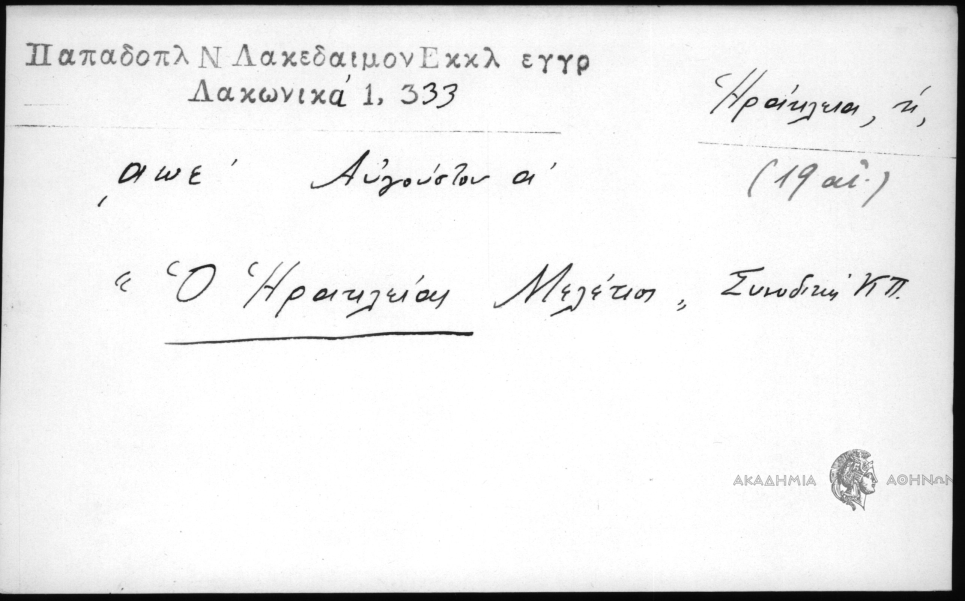 Παπαδοπλ Ν Λακεδαιμον Εκκλ εγγρ
Λακωνικά 1, 333
Ἡράκλεια, ἡ,
͵αωε΄ Αὐγούστου α΄
(19 αἰ.)
“ Ὁ Ἡρακλείας Μελέτιος „ Συνοδική ΚΠ.
ΑΚΑΔΗΜΙΑ ΑΘΗΝΩΝ